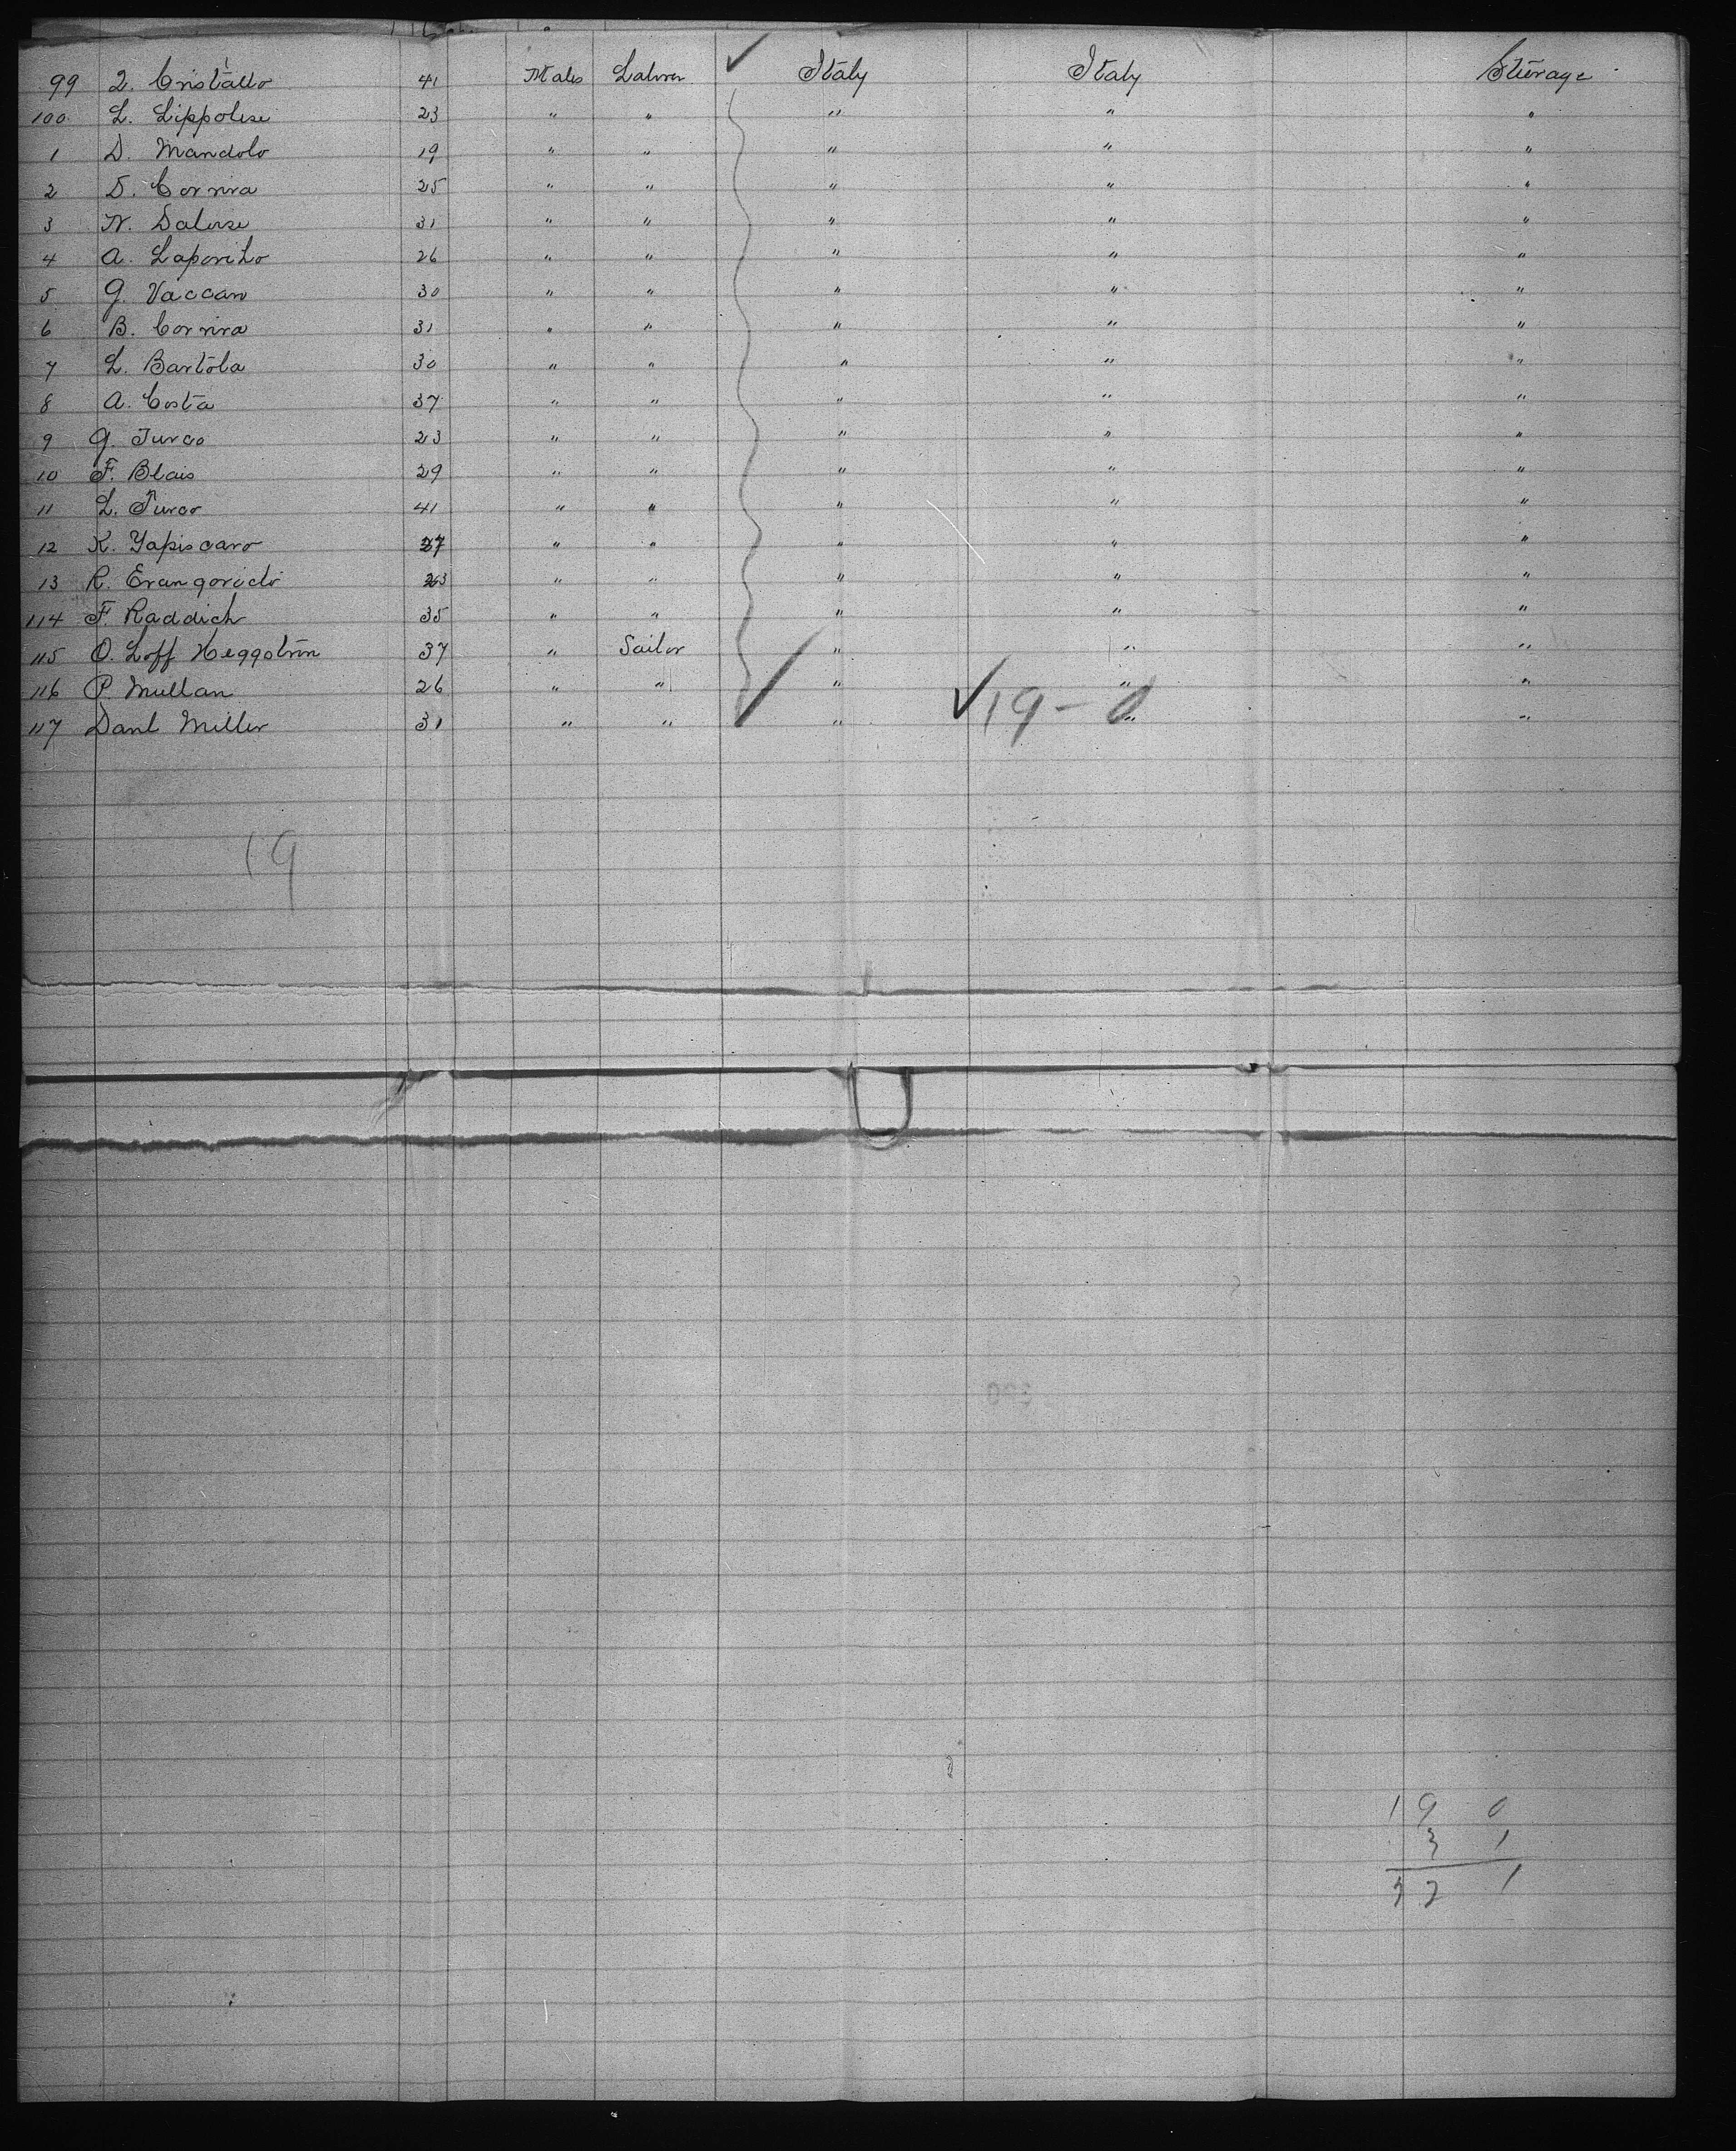 99 L. Cristallo 41 Males Laborer ✓ Italy Italy Steerage
100 L. Lippolise 23 " " " " "
1 D. Mandolo 19 " " " " "
2 D. Corrira 25 " " " " "
3 N. Dalese 31 " " " " "
4 A. 26 " " " " "
5 G. Vaccaro 30 " " " " "
6 B. Corrira 31 " " " " "
7 L. Bartola 30 " " " " "
8 A. Costa 37 " " " " "
9 G. Turco 23 " " " " "
10 F. Blais 29 " " " " "
11 L. Turco 41 " " " " "
12 K. Yapiscaro 27 " " " " "
13 R. 23 " " " " "
114 F. Raddich 35 " " " " "
115 O. Loff Heggstrom 37 " Sailor " " "
116 P. Mullan 26 " " " " "
117 Danl Miller 31 " " " ✓ 19 - 0 " "
19
19 0
3 1
32 1